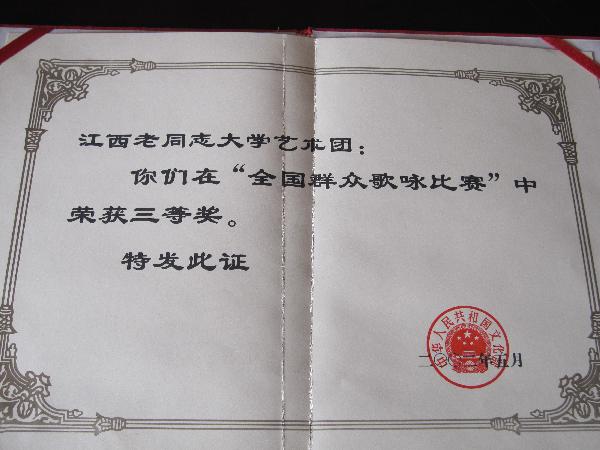 江西老同志大学艺术团：
你们在“全国群众歌咏比赛”中
荣获三等奖。
特发此证
中华人民共和国文化部
年五月